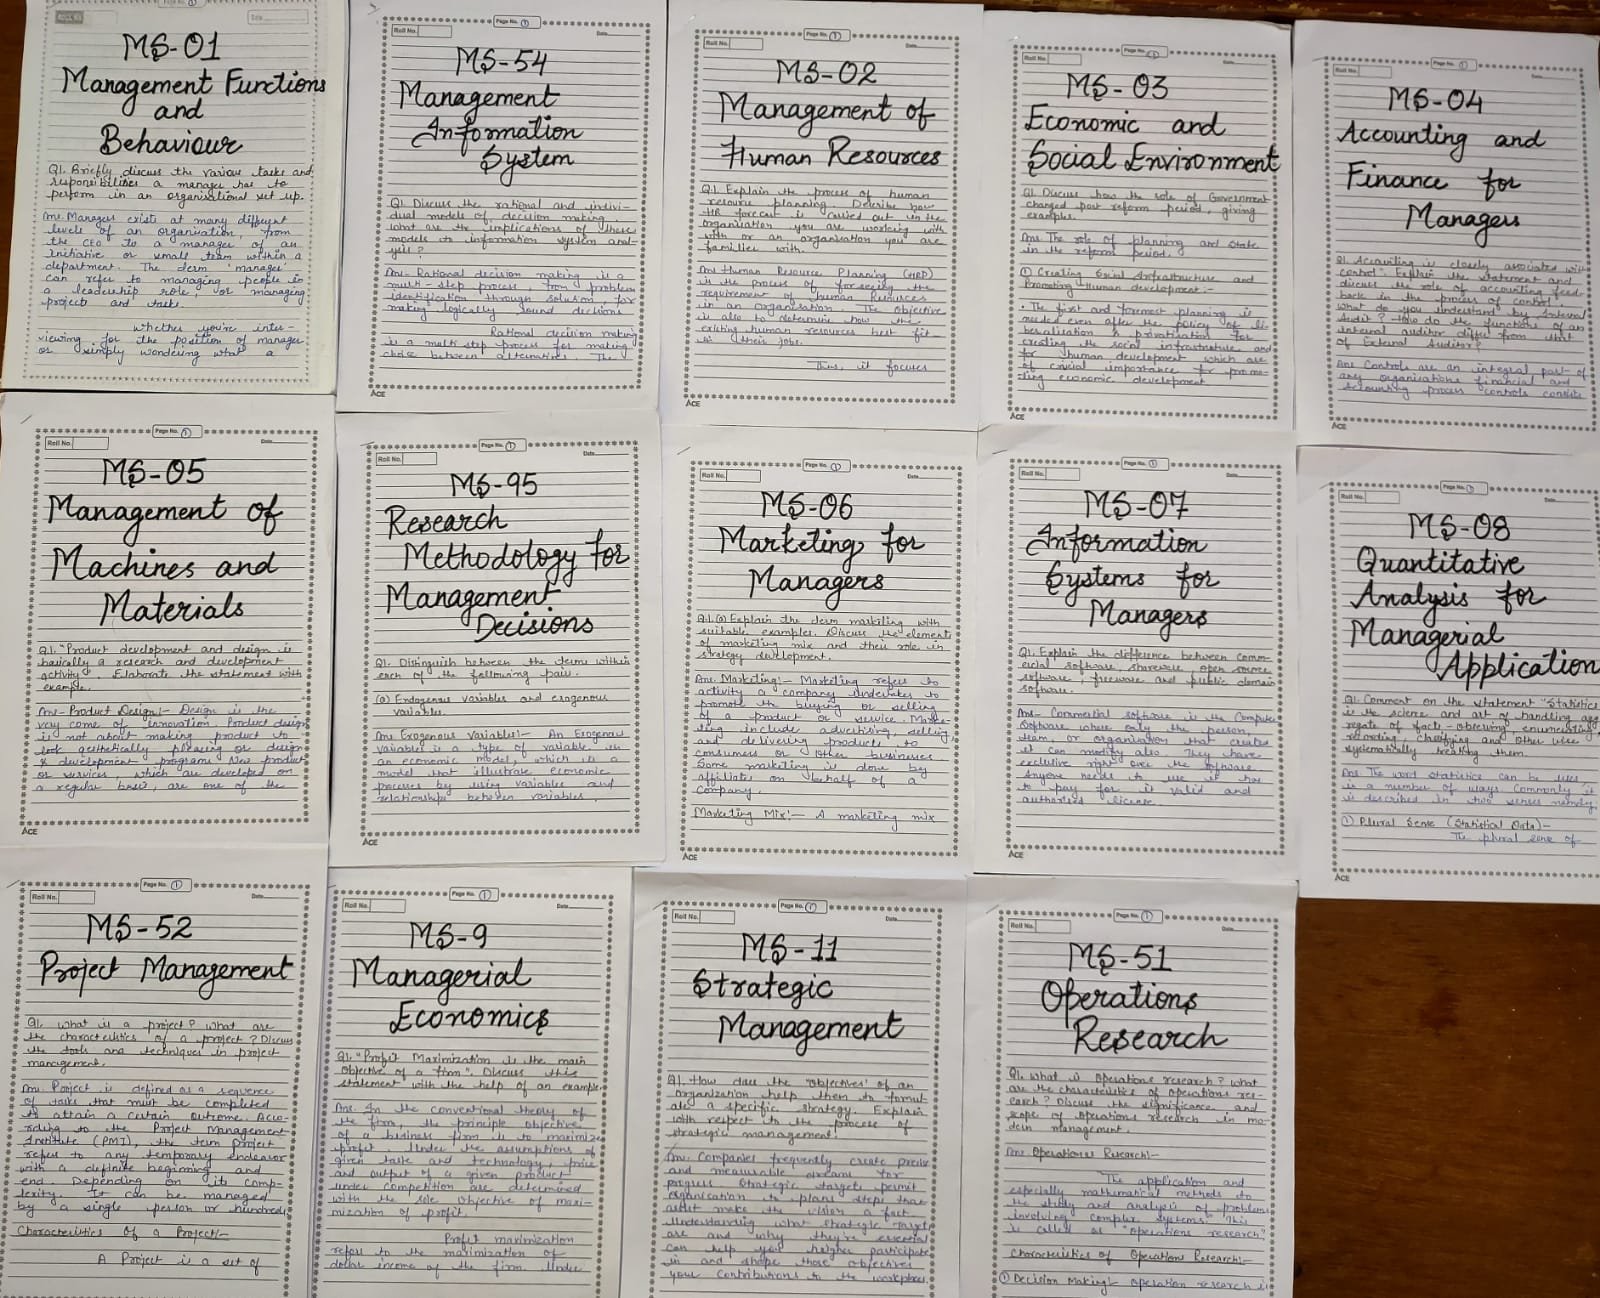 Page No. 1
MS-01
Management Functions
and
Behaviour
Q1. Briefly discuss the various tasks and
responsibilities a manager has to
perform in an organisational set up.
Ans. Managers exists at many different
levels of an organisation, from
the CEO to a manager of an
initiative or small team within a
department. The term 'manager'
can refer to managing people in
a leadership role, or managing
projects and tasks.
whether you're inter-
viewing for the position of manager
or simply wondering what a
Page No. 1
Roll No.
Date
MS-54
Management
Information
System
Q1. Discuss the rational and indivi-
dual models of decision making.
what are the implications of these
models to information system anal-
ysis?
Ans- Rational decision making is a
multi-step process, from problem
identification through solution, for
making logically sound decisions
Rational decision making
is a multi step process for making
choice between alternatives. The
ACE
Page No. 1
Roll No.
Date
MS-02
Management of
Human Resources
Q1. Explain the process of human
resource planning. Describe how
HR forecast is carried out in the
organisation you are working with
with or an organisation you are
familier with.
Ans Human Resource Planning (HRP)
is the process of forseeing the
requirement of human Resources
in an organisation. The objective
is also to determine how the
existing human resources best fit
in their jobs.
Thus, it focuses
ACE
Page No. 1
Roll No.
Date
MS-03
Economic and
Social Environment
Q1. Discuss how the role of Government
changed post reform period, giving
examples.
Ans. The role of planning and state
in the reform period.
① Creating Social Infrastructure and
Promoting Human development:-
• The first and foremost planning is
needed even after the policy of li-
beralisation & privatisation for
creating the social infrastructure and
for human development which are
of crucial importance for promo-
ting economic development
ACE
Page No. 1
Roll No.
Date
MS-04
Accounting and
Finance for
Managers
Q1. Accounting is closely associated with
control". Explain the statement and
discuss the role of accounting feed-
back in the process of control.
What do you understand by Internal
Audit? How do the functions of an
internal auditor differ from that
of External Auditor?
Ans Controls are an integral part of
any organisations financial and
accounting process controls consists
ACE
Page No. 1
Roll No.
Date
MS-05
Management of
Machines and
Materials
Q.1. "Product development and design is
basically a research and development
activity". Elaborate the statement with
example.
Ans- Product Design:- Design is the
very come of innovation. Product design
is not about making product to
look aesthetically pleasing or design
& development program. New product
or services, which are developed on
a regular basis, are one of the
ACE
Page No. 1
Roll No.
Date
MS-95
Research
Methodology for
Management
Decisions
Q1. Distinguish between the terms within
each of the following pair.
(a) Endogenous variables and exogenous
variables.
Ans Exogenous Variables:- An Exogenous
variable is a type of variable in
an economic model, which is a
model that illustrate economic
process by using variables and
relationships between variables.
ACE
Page No. 1
Roll No.
Date
MS-06
Marketing for
Managers
Q.1.(a) Explain the term marketing with
suitable examples. Discuss the elements
of marketing mix and their role in
strategy development.
Ans. Marketing:- Marketing refers to
activity a company undertakes to
promote the buying or selling
of a product or service. Marke-
ting include advertising, selling,
and delivering products to
consumers or other businesses.
Some marketing is done by
affiliates on behalf of a
company.
Marketing Mix:- A marketing mix
ACE
Page No. 1
Roll No.
Date
MS-07
Information
Systems for
Managers
Q1. Explain the difference between Comm-
ercial software, shareware, open source
software, freeware and public domain
software.
Ans- Commercial software is the Computer
Software where only the person,
team, or organisation that creates
it can modify also They have
exclusive right over the software
Anyone needs to use it has
to pay for it valid and
authorised license.
ACE
Page No. 1
Roll No.
Date
MS-08
Quantitative
Analysis for
Managerial
Application
Q1. Comment on the statement "Statistics
is the science and art of handling agg
regate of facts - observing, enumerating,
recording, classifying and other wise
systematically treating them.
Ans. The word statistics can be used
is a number of ways. Commonly it
is described in two senses namely.
① Plural Sense (Statistical Data)-
The plural sense of
ACE
Page No. 1
Roll No.
Date
MS-52
Project Management
Q1. what is a project? what are
the characteristics of a project? Discuss
the tools and techniques in project
management.
Ans. Project is defined as a sequence
of tasks that must be completed
to attain a certain outcome. Acco-
rding to the Project Management
Institute (PMI), the term project
refer to any temporary endeavor
with a definite beginning and
end. Depending on its comp-
lexity. It can be managed
by a single person or hundreds
Characteristics of a Project:-
A Project is a set of
Page No. 1
Roll No.
Date
MS-9
Managerial
Economics
Q1. "Profit Maximization is the main
objective of a firm". Discuss this
statement with the help of an example
Ans. In the conventional theory of
the firm, the principle objective
of a business firm is to maximize
profit. Under the assumptions of
given taste and technology, price
and output of a given product
under competition are determined
with the sole objective of maxi-
mization of profit.
Profit maximization
refers to the maximization of
dollar income of the firm. Under
Page No. 1
Roll No.
Date
MS-11
Strategic
Management
Q1. How does the 'objectives' of an
organization help them to formul
ate a specific strategy. Explain
with respect to the process of
strategic management.
Ans. Companies frequently create precise
and measurable dreams for
progress Strategic targets permit
organisation to plans steps that
assist make the vision a fact.
Understanding what strategic targets
are and why they're essential
can help you higher participate
in and shape those objectives
your contributions to the workplace.
Page No. 1
Roll No.
Date
MS-51
Operations
Research
Q1. what is operations research? what
are the characteristics of operations res-
earch? Discuss the significance and
scope of operations research in mo-
dern management.
Ans. Operations Research:-
The application and
especially mathematical methods to
the study and analysis of problem
involving complex systems. This
is called as "operations research"
Characteristics of Operations Research:-
① Decision Making:- Operation research is